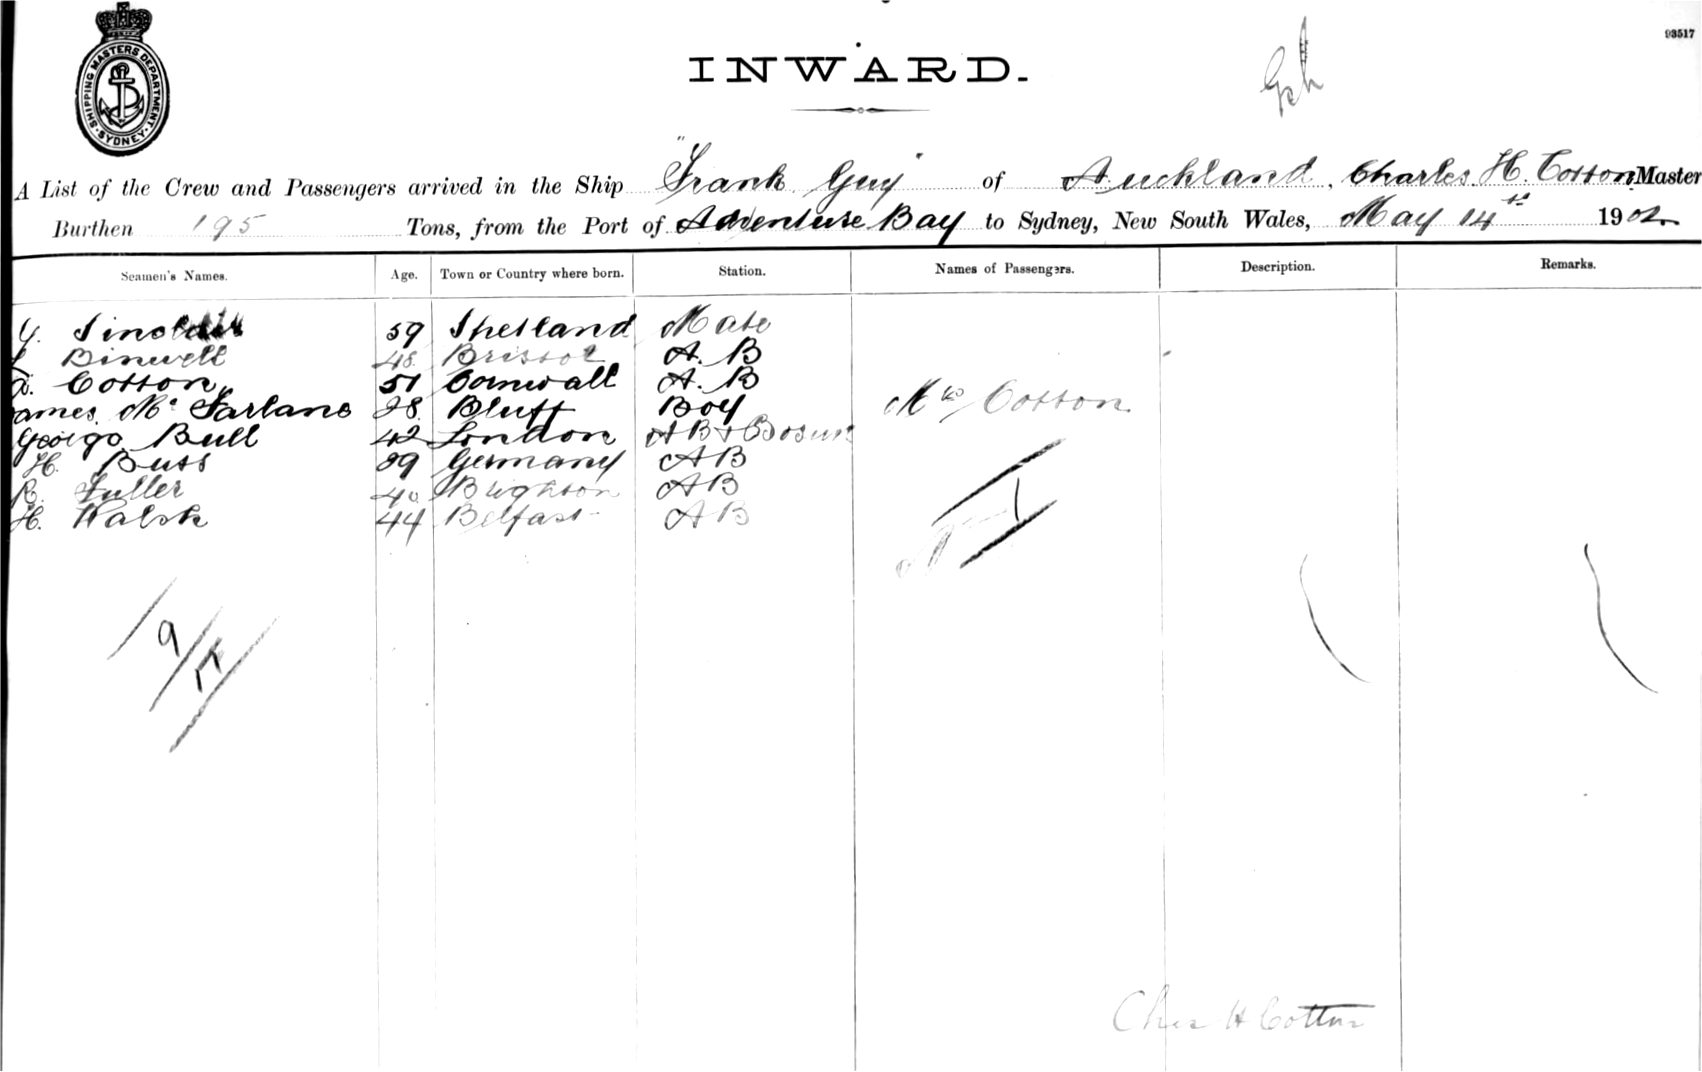 93517
SHIPPING MASTERS DEPARTMENT
SYDNEY
INWARD.
A List of the Crew and Passengers arrived in the Ship "Frank Guy" of Auckland, Charles H. Cotton, Master
Burthen 195 Tons, from the Port of Adventure Bay to Sydney, New South Wales, May 14th 1902
Seamen's Names. Age. Town or Country where born. Station. Names of Passengers. Description. Remarks.
Sinclair 59 Shetland Mate
Binwell 48 Bristol A. B
Cotton 51 Cornwall A. B
ames Mc Farlane 28 Bluff Boy Mrs Cotton
George Bull 42 London AB & Bosun
H. Buss 39 Germany AB
R. Fuller 40 Brighton AB
H. Walsh 44 Belfast AB
9
1
Chas H Cotton